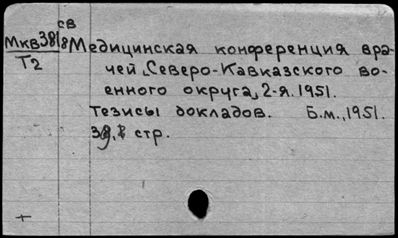 св
Мкв38/8 Медицинская конференция вра-
Т2 чей „Северо-Кавказского во-
енного округа„ 2-я. 1951.
Тезисы докладов. Б.м., 1951.
стр.
+